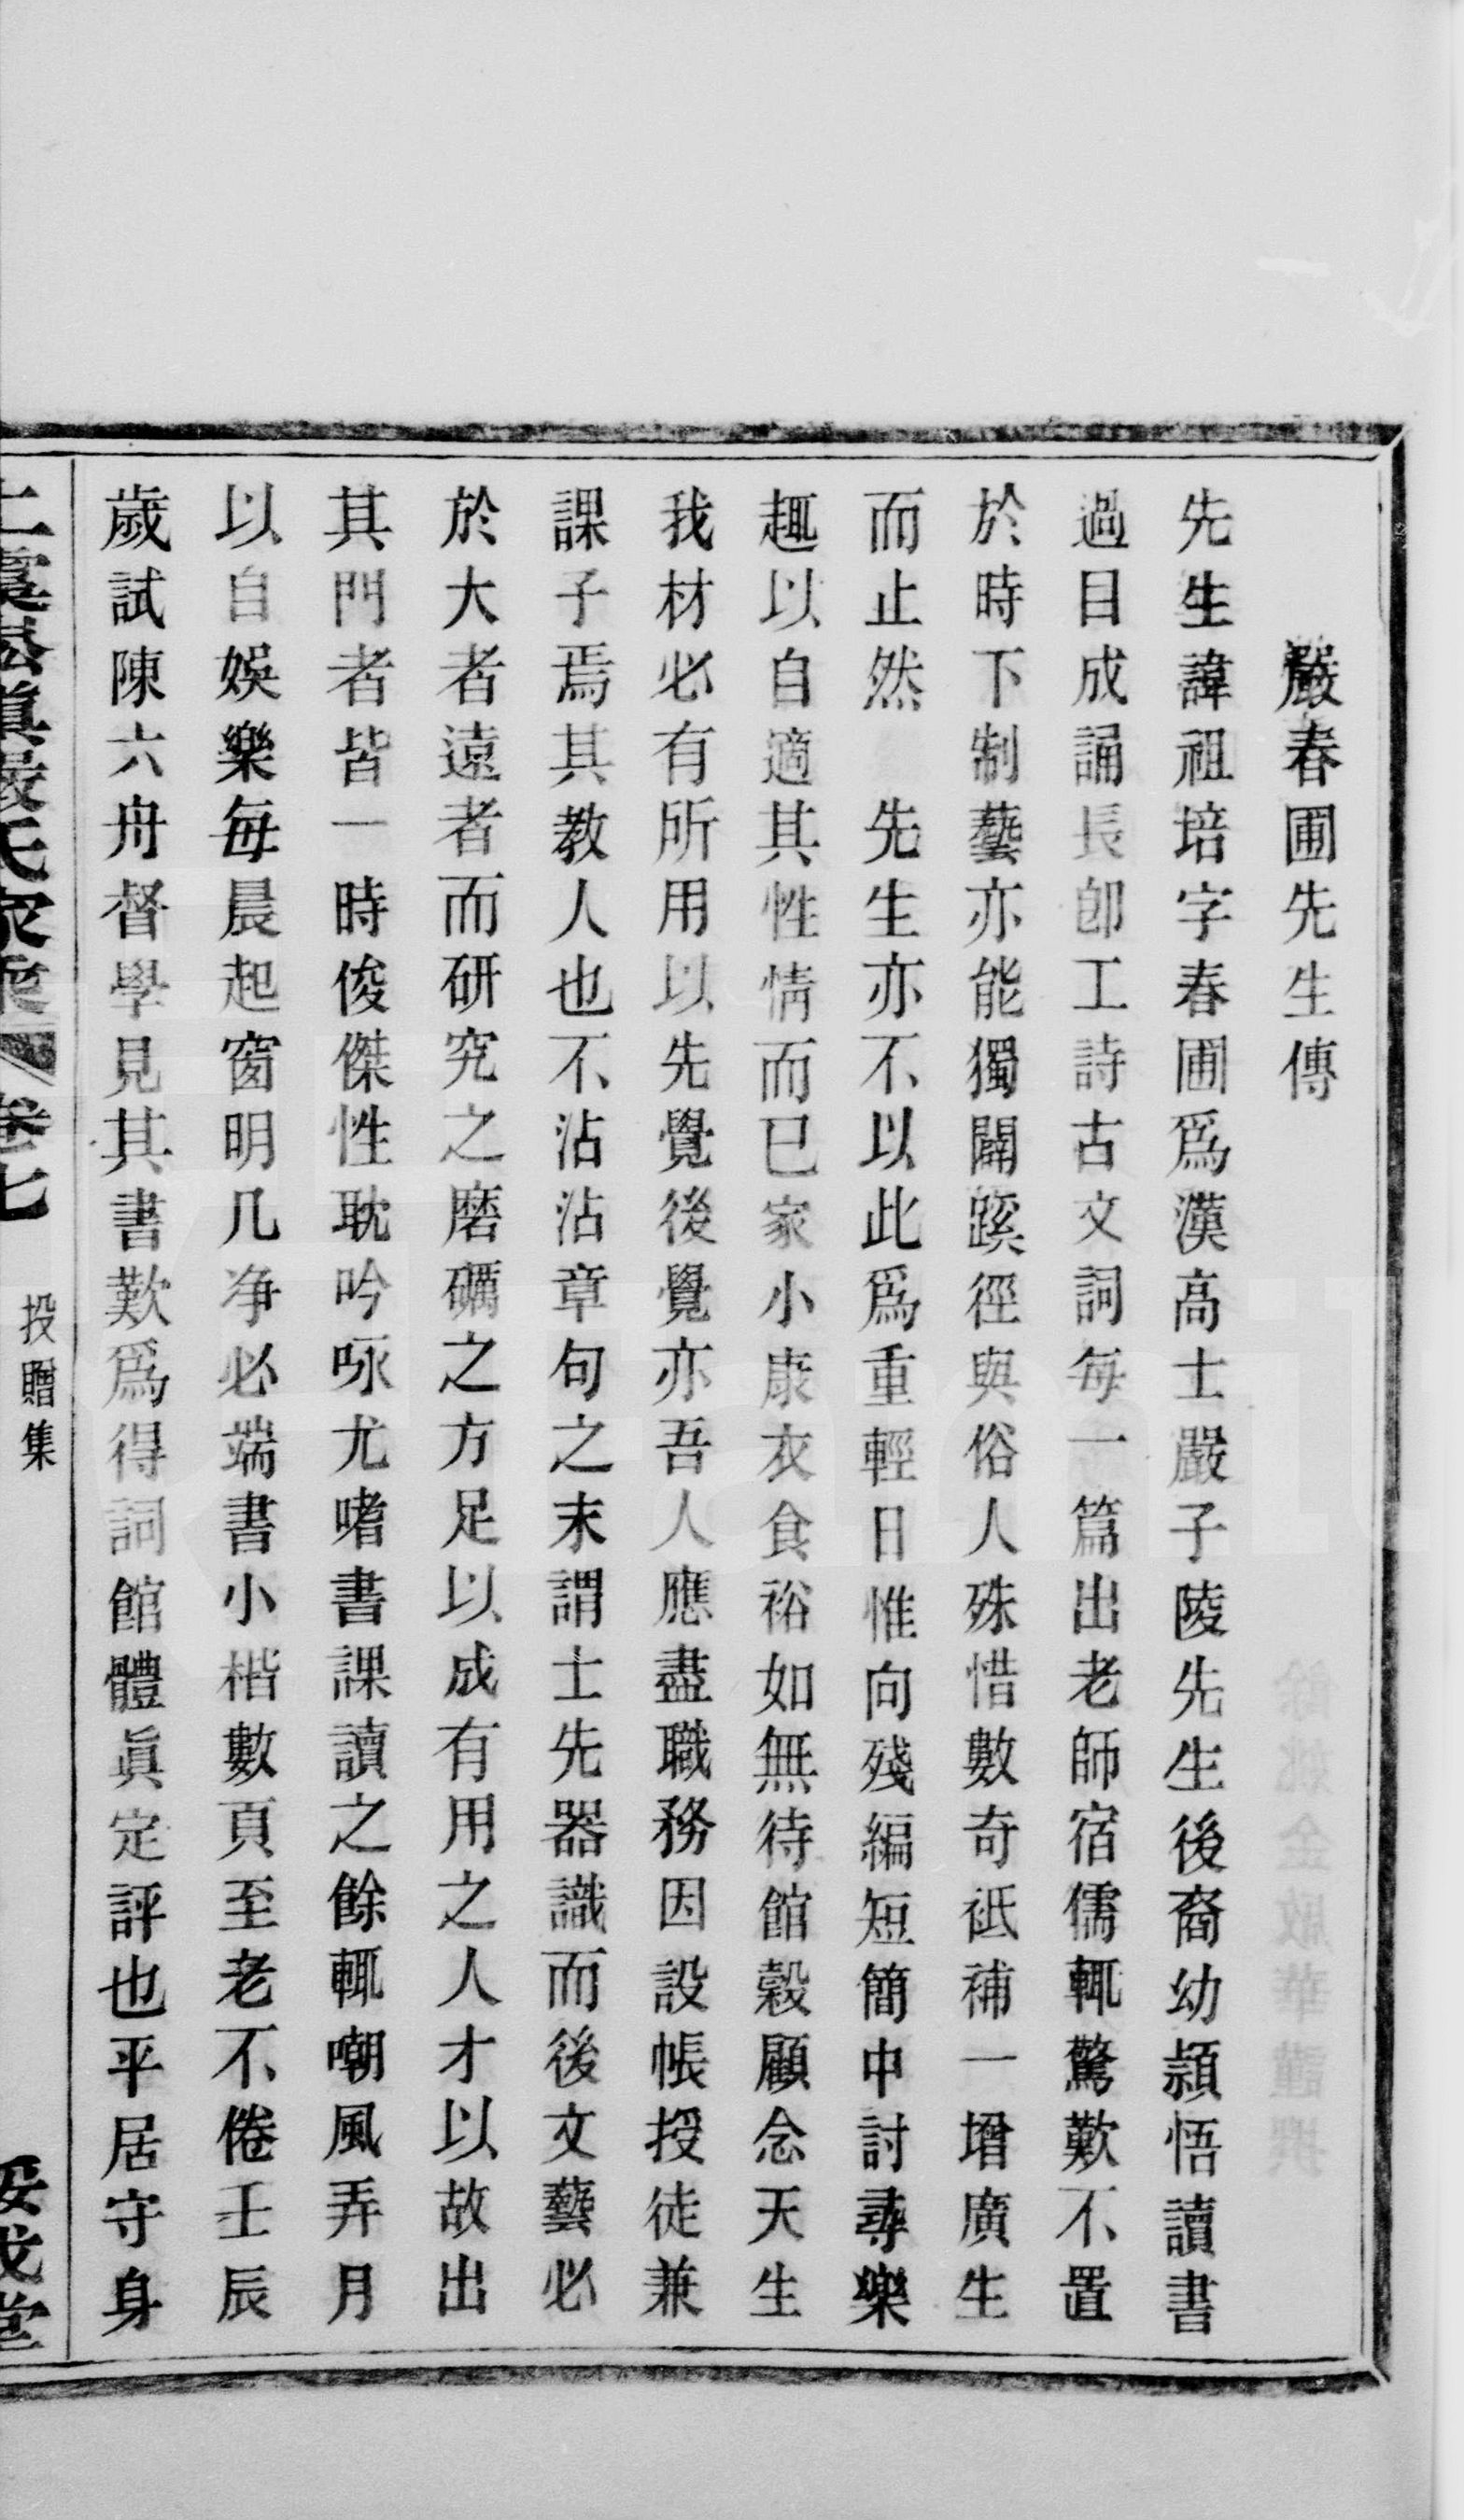 嚴春圃先生傳
餘姚金啟華謹撰
先生諱祖培字春圃爲漢高士嚴子陵先生後裔幼潁悟讀書
過目成誦長卽工詩古文詞每一篇出老師宿儒輒驚歎不置
於時下制藝亦能獨闢蹊徑與俗人殊惜數奇祗補一增廣生
而止然先生亦不以此爲重輕日惟向殘編短簡中討尋樂
趣以自適其性情而已家小康衣食裕如無待館穀顧念天生
我材必有所用以先覺後覺亦吾人應盡職務因設帳授徒兼
課子焉其教人也不沾沾章句之末謂士先器識而後文藝必
於大者遠者而研究之磨礪之方足以成有用之人才以故出
其門者皆一時俊傑性耽吟咏尤嗜書課讀之餘輒嘲風弄月
以自娛樂每晨起窗明几净必端書小楷數頁至老不倦壬辰
歲試陳六舟督學見其書歎爲得詞館體眞定評也平居守身
上虞松眞嚴氏家乘
卷七
投贈集